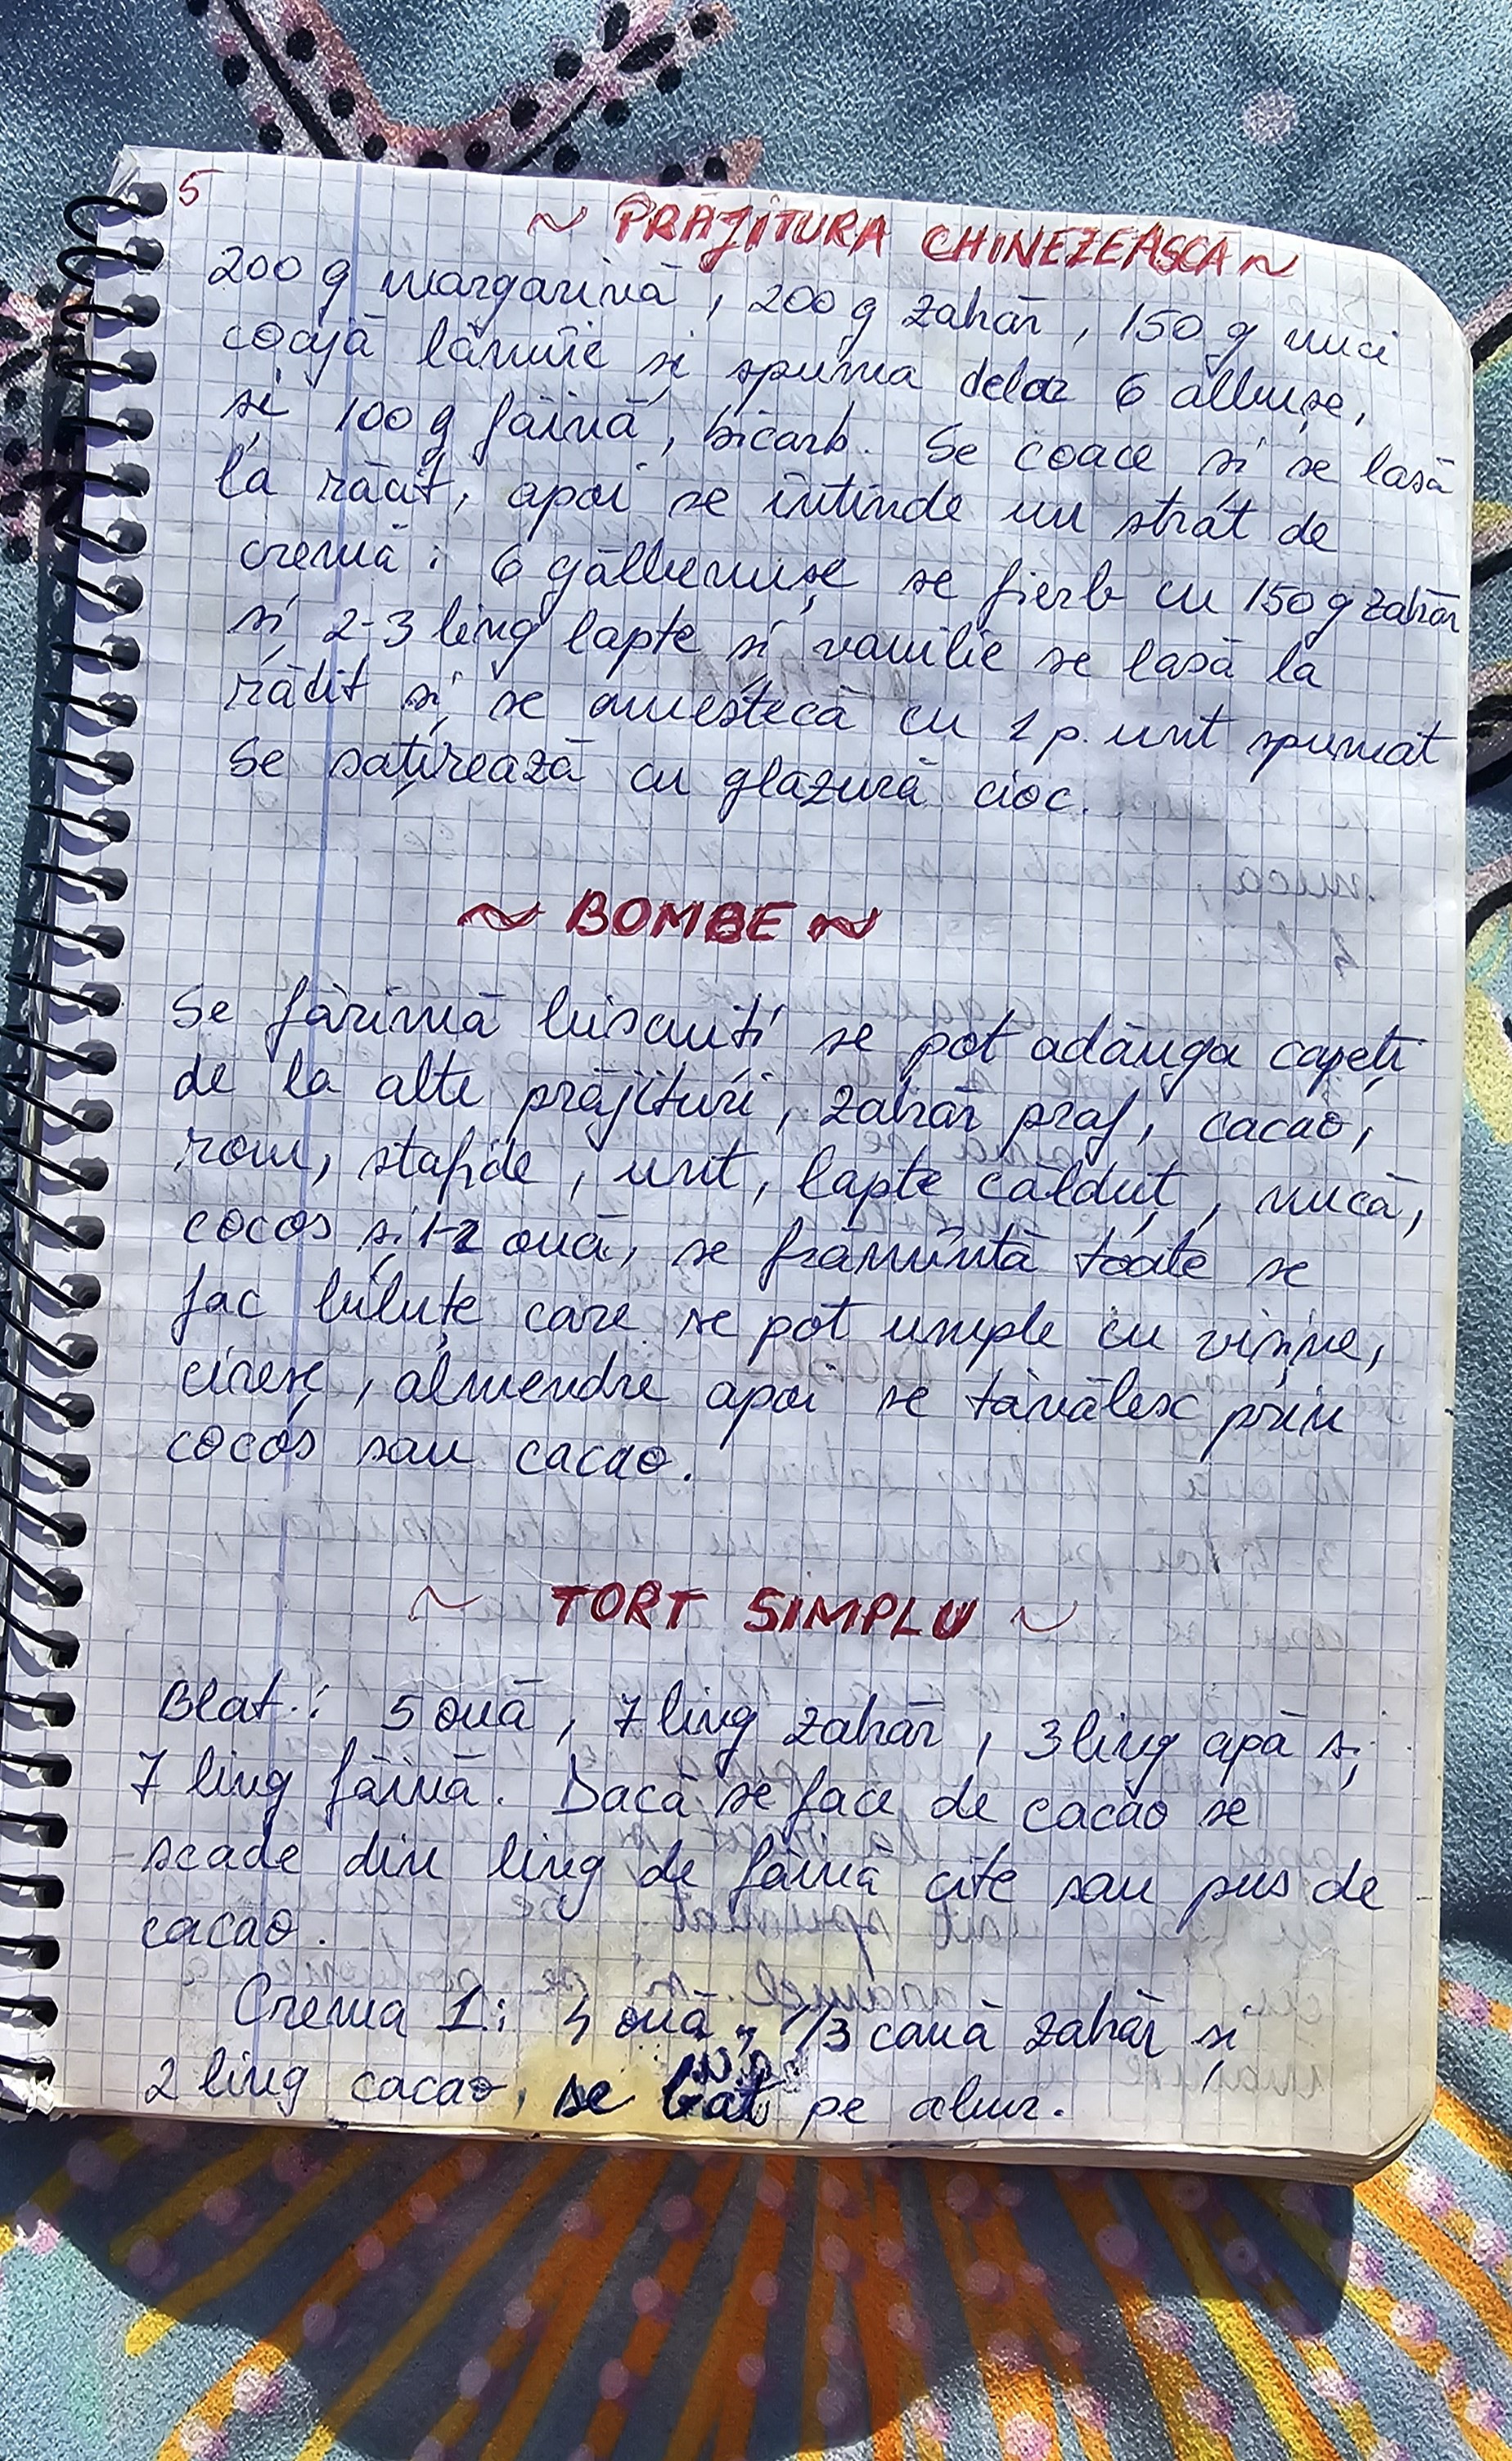 5
~ PRĂJITURA CHINEZEASCĂ ~
200 g margarină, 200 g zahăr, 150 g nuci
coajă lămîie și spuma dela 6 albușe,
si 100 g făină, bicarb. Se coace si se lasă
la răcit, apoi se întinde un strat de
cremă: 6 gălbenușe se fierb cu 150 g zahăr
și 2-3 ling lapte si vanilie se lasă la
răcit și se amestecă cu 1 p. unt spumat
Se satirează cu glazură cioc.
~ BOMBE ~
Se fărîmă biscuiti se pot adăuga capeți
de la alte prăjituri, zahăr praf, cacao,
rom, stafide, unt, lapte călduț, nucă,
cocos și 1-2 ouă, se frămîntă toate se
fac biluțe care se pot umple cu vișine,
cireșe, almendre apoi se tăvălesc prin
cocos sau cacao.
~ TORT SIMPLU ~
Blat.: 5 ouă, 7 ling zahăr, 3 ling apă și
7 ling făină. Dacă se face de cacao se
scade din ling de făină cîte sau pus de
cacao.
Crema 1: 4 ouă, 1/3 cană zahăr și
2 ling cacao, se bat pe abur.